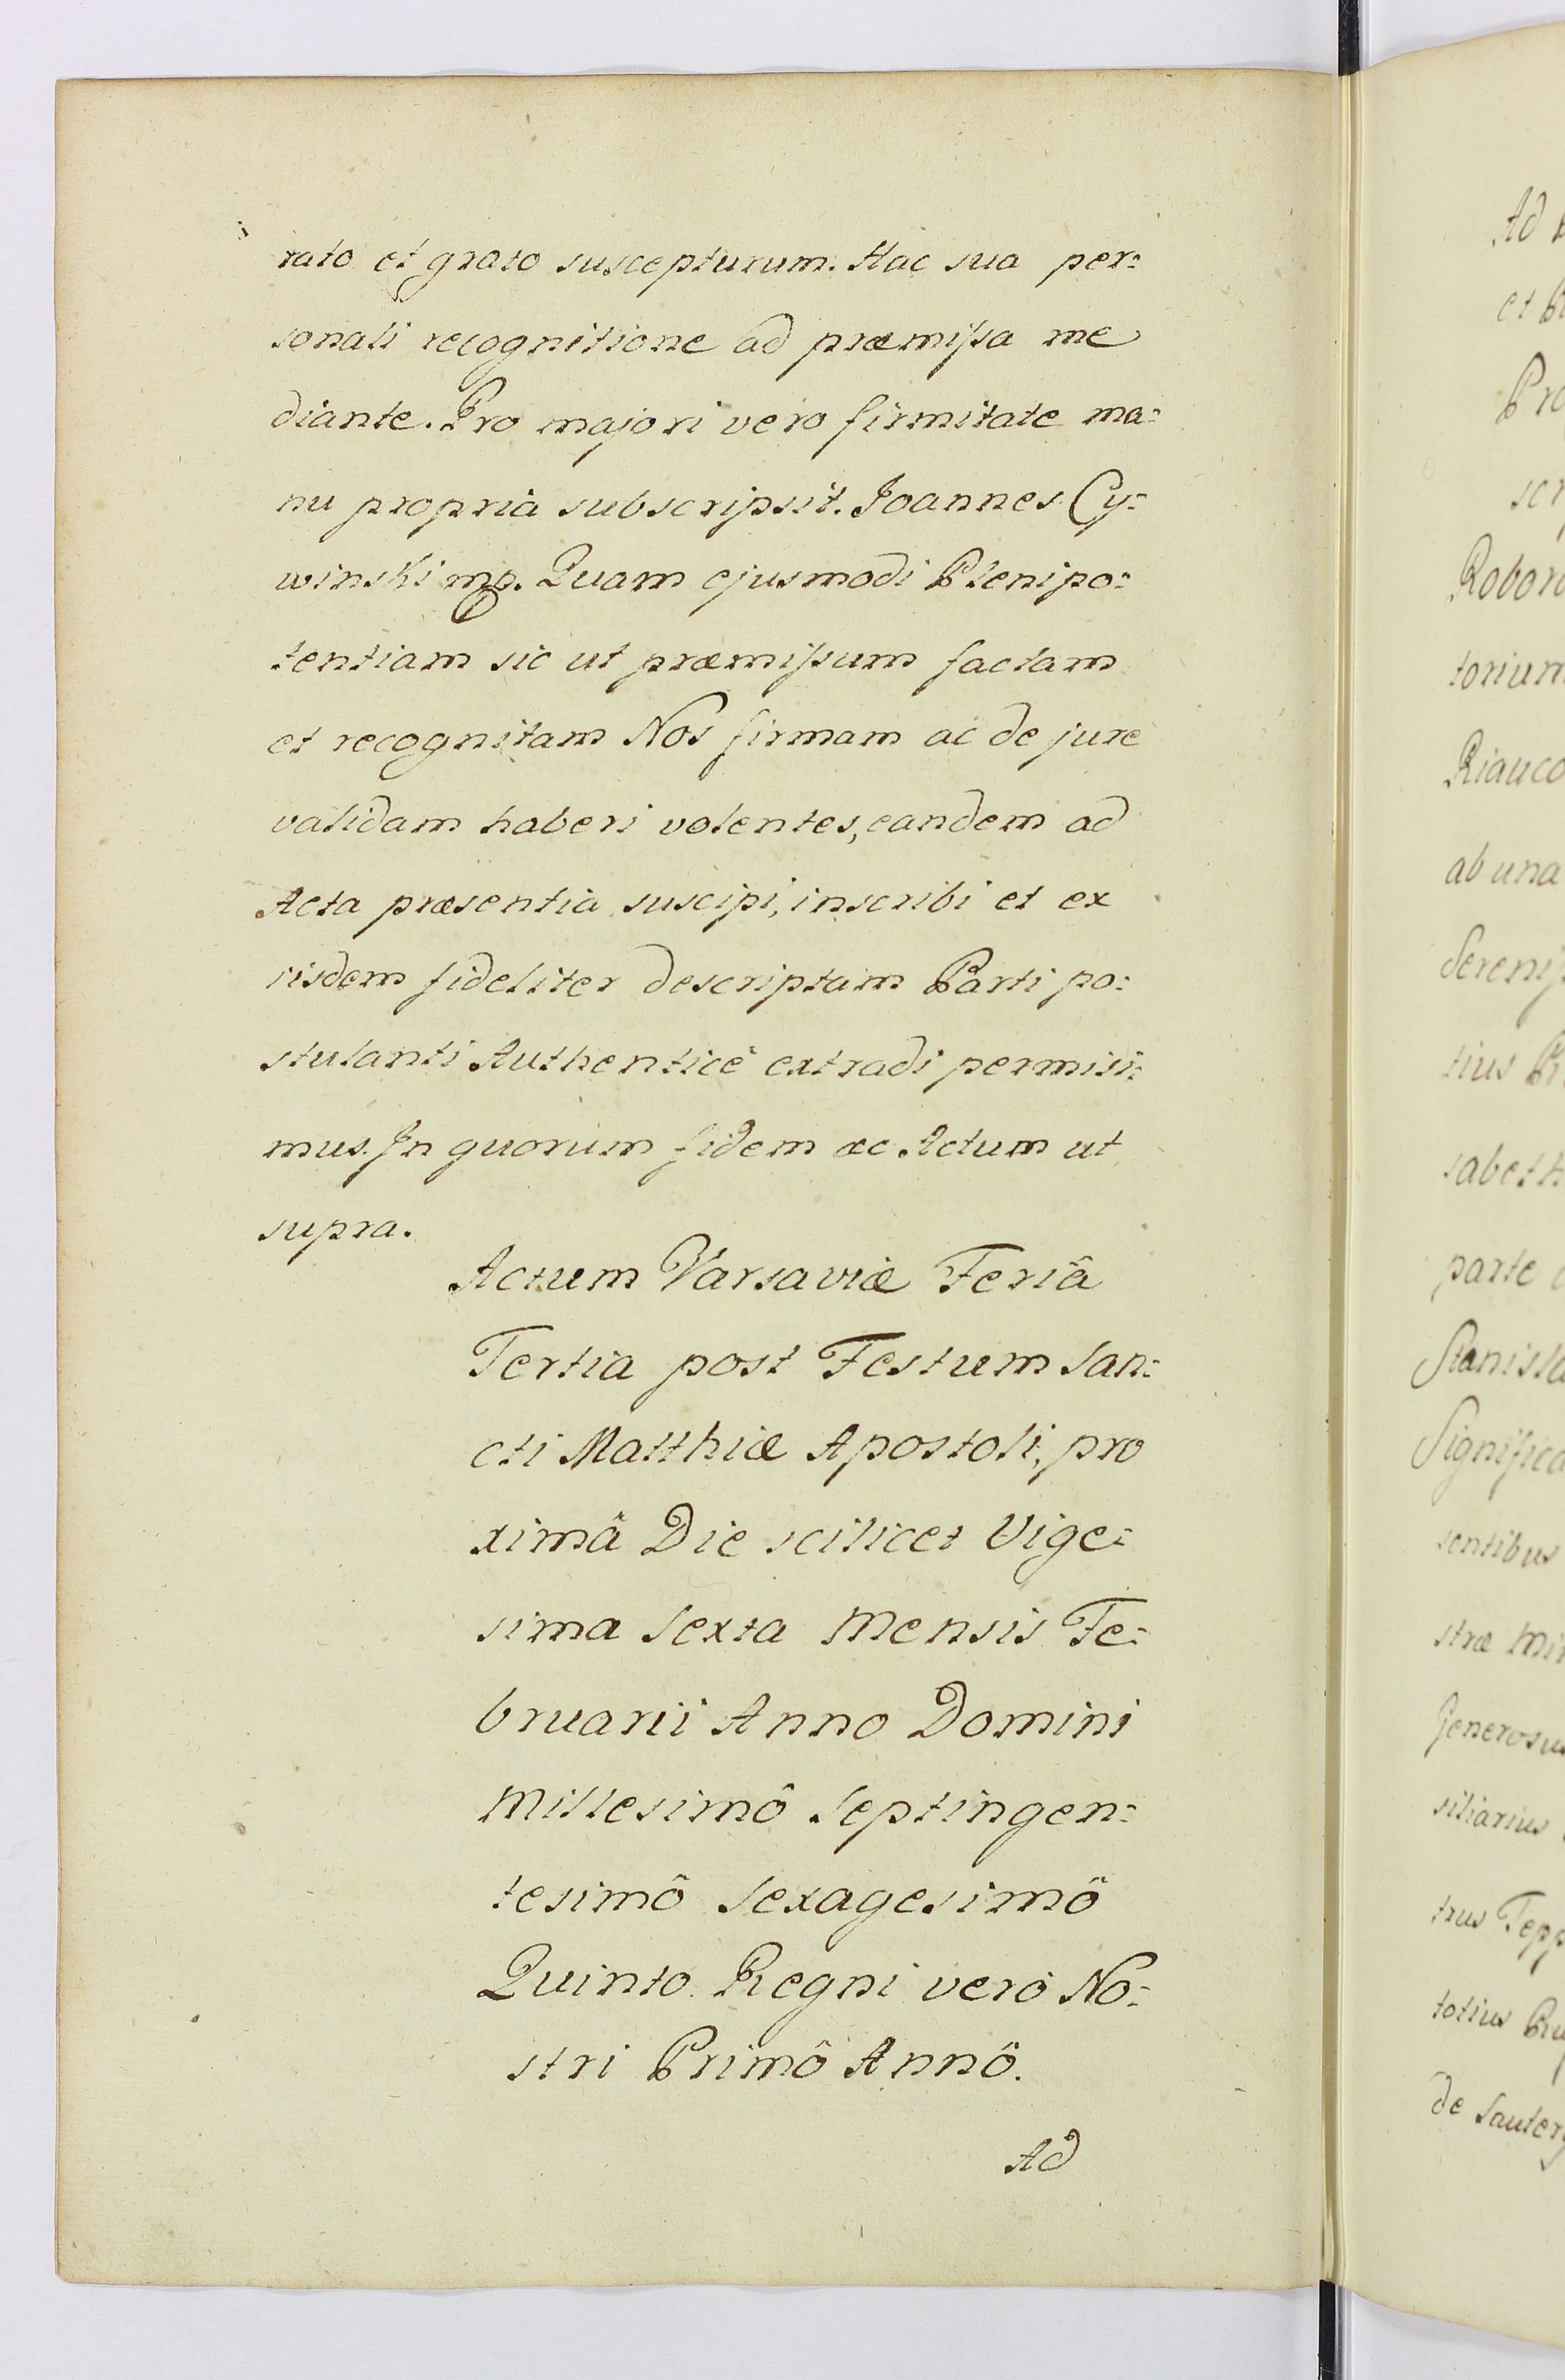 rato et grato suscepturum. Hac sua per:
sonali recognitione ad præmissa me
diante. Pro majori vero firmitate ma:
nu propria subscripsit. Joannes Cy:
winski mp. Quam ejusmodi Plenipo:
tentiam sic ut præmissum factam
et recognitam Nos firmam ac de jure
validam haberi volentes, eandem ad
Acta præsentia suscipi, inscribi et ex
iisdem fideliter descriptam Parti po:
stulanti Authenticè extradi permisi:
mus. In quorum fidem ac Actum ut
supra.
Actum Varsaviæ Feriâ
Tertia post Festum San:
cti Matthiæ Apostoli, pro
ximâ Die scilicet Vige:
sima Sexta Mensis Fe:
bruarii Anno Domini
Millesimô Septingen:
tesimô Sexagesimô
Quinto. Regni verò No:
stri Primô Annô.
Ad
Ad
et
Pro
scr
Robor
torium
Riauco
ab una
Sereniss
tius
sabeth
parte
Stanisla
Significa
sentibus
stræ
Generosu
siliarius
trus Tepp
totius
de Sauter